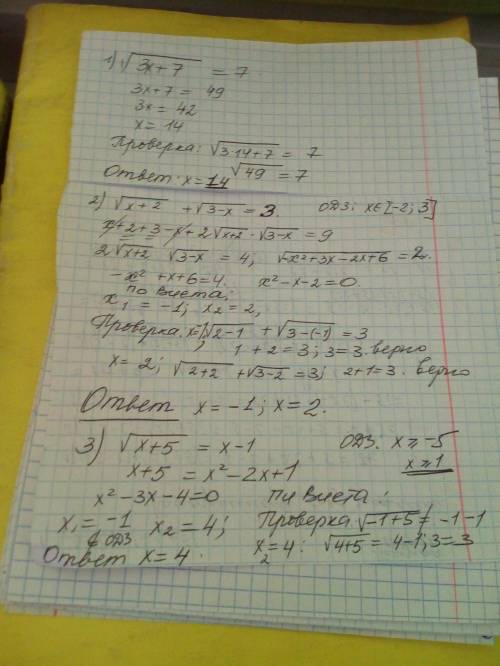 1) √3x+7 = 7
3x+7 = 49
3x = 42
x = 14
Проверка: √3·14+7 = 7
√49 = 7
Ответ: x = 14
2) √x+2 + √3-x = 3. ОДЗ: x∈[-2; 3]
x+2+3-x+2√x+2 · √3-x = 9
2√x+2 √3-x = 4; √-x²+3x-2x+6 = 2.
-x²+x+6=4. x²-x-2=0.
по Виета;
x₁ = -1; x₂ = 2,
Проверка: x=-1; √2-1 + √3-(-1) = 3
1+2=3; 3=3. верно
x = 2; √2+2 + √3-2 = 3; 2+1=3. верно
Ответ x = -1; x = 2.
3) √x+5 = x-1 ОДЗ: x ⩾ -5
x ⩾ 1
x+5 = x²-2x+1
x²-3x-4=0 по Виета:
x₁ = -1 x₂ = 4; Проверка √-1+5 ≠ -1-1
∉ ОДЗ x₂=4: √4+5 = 4-1; 3=3
Ответ x = 4.